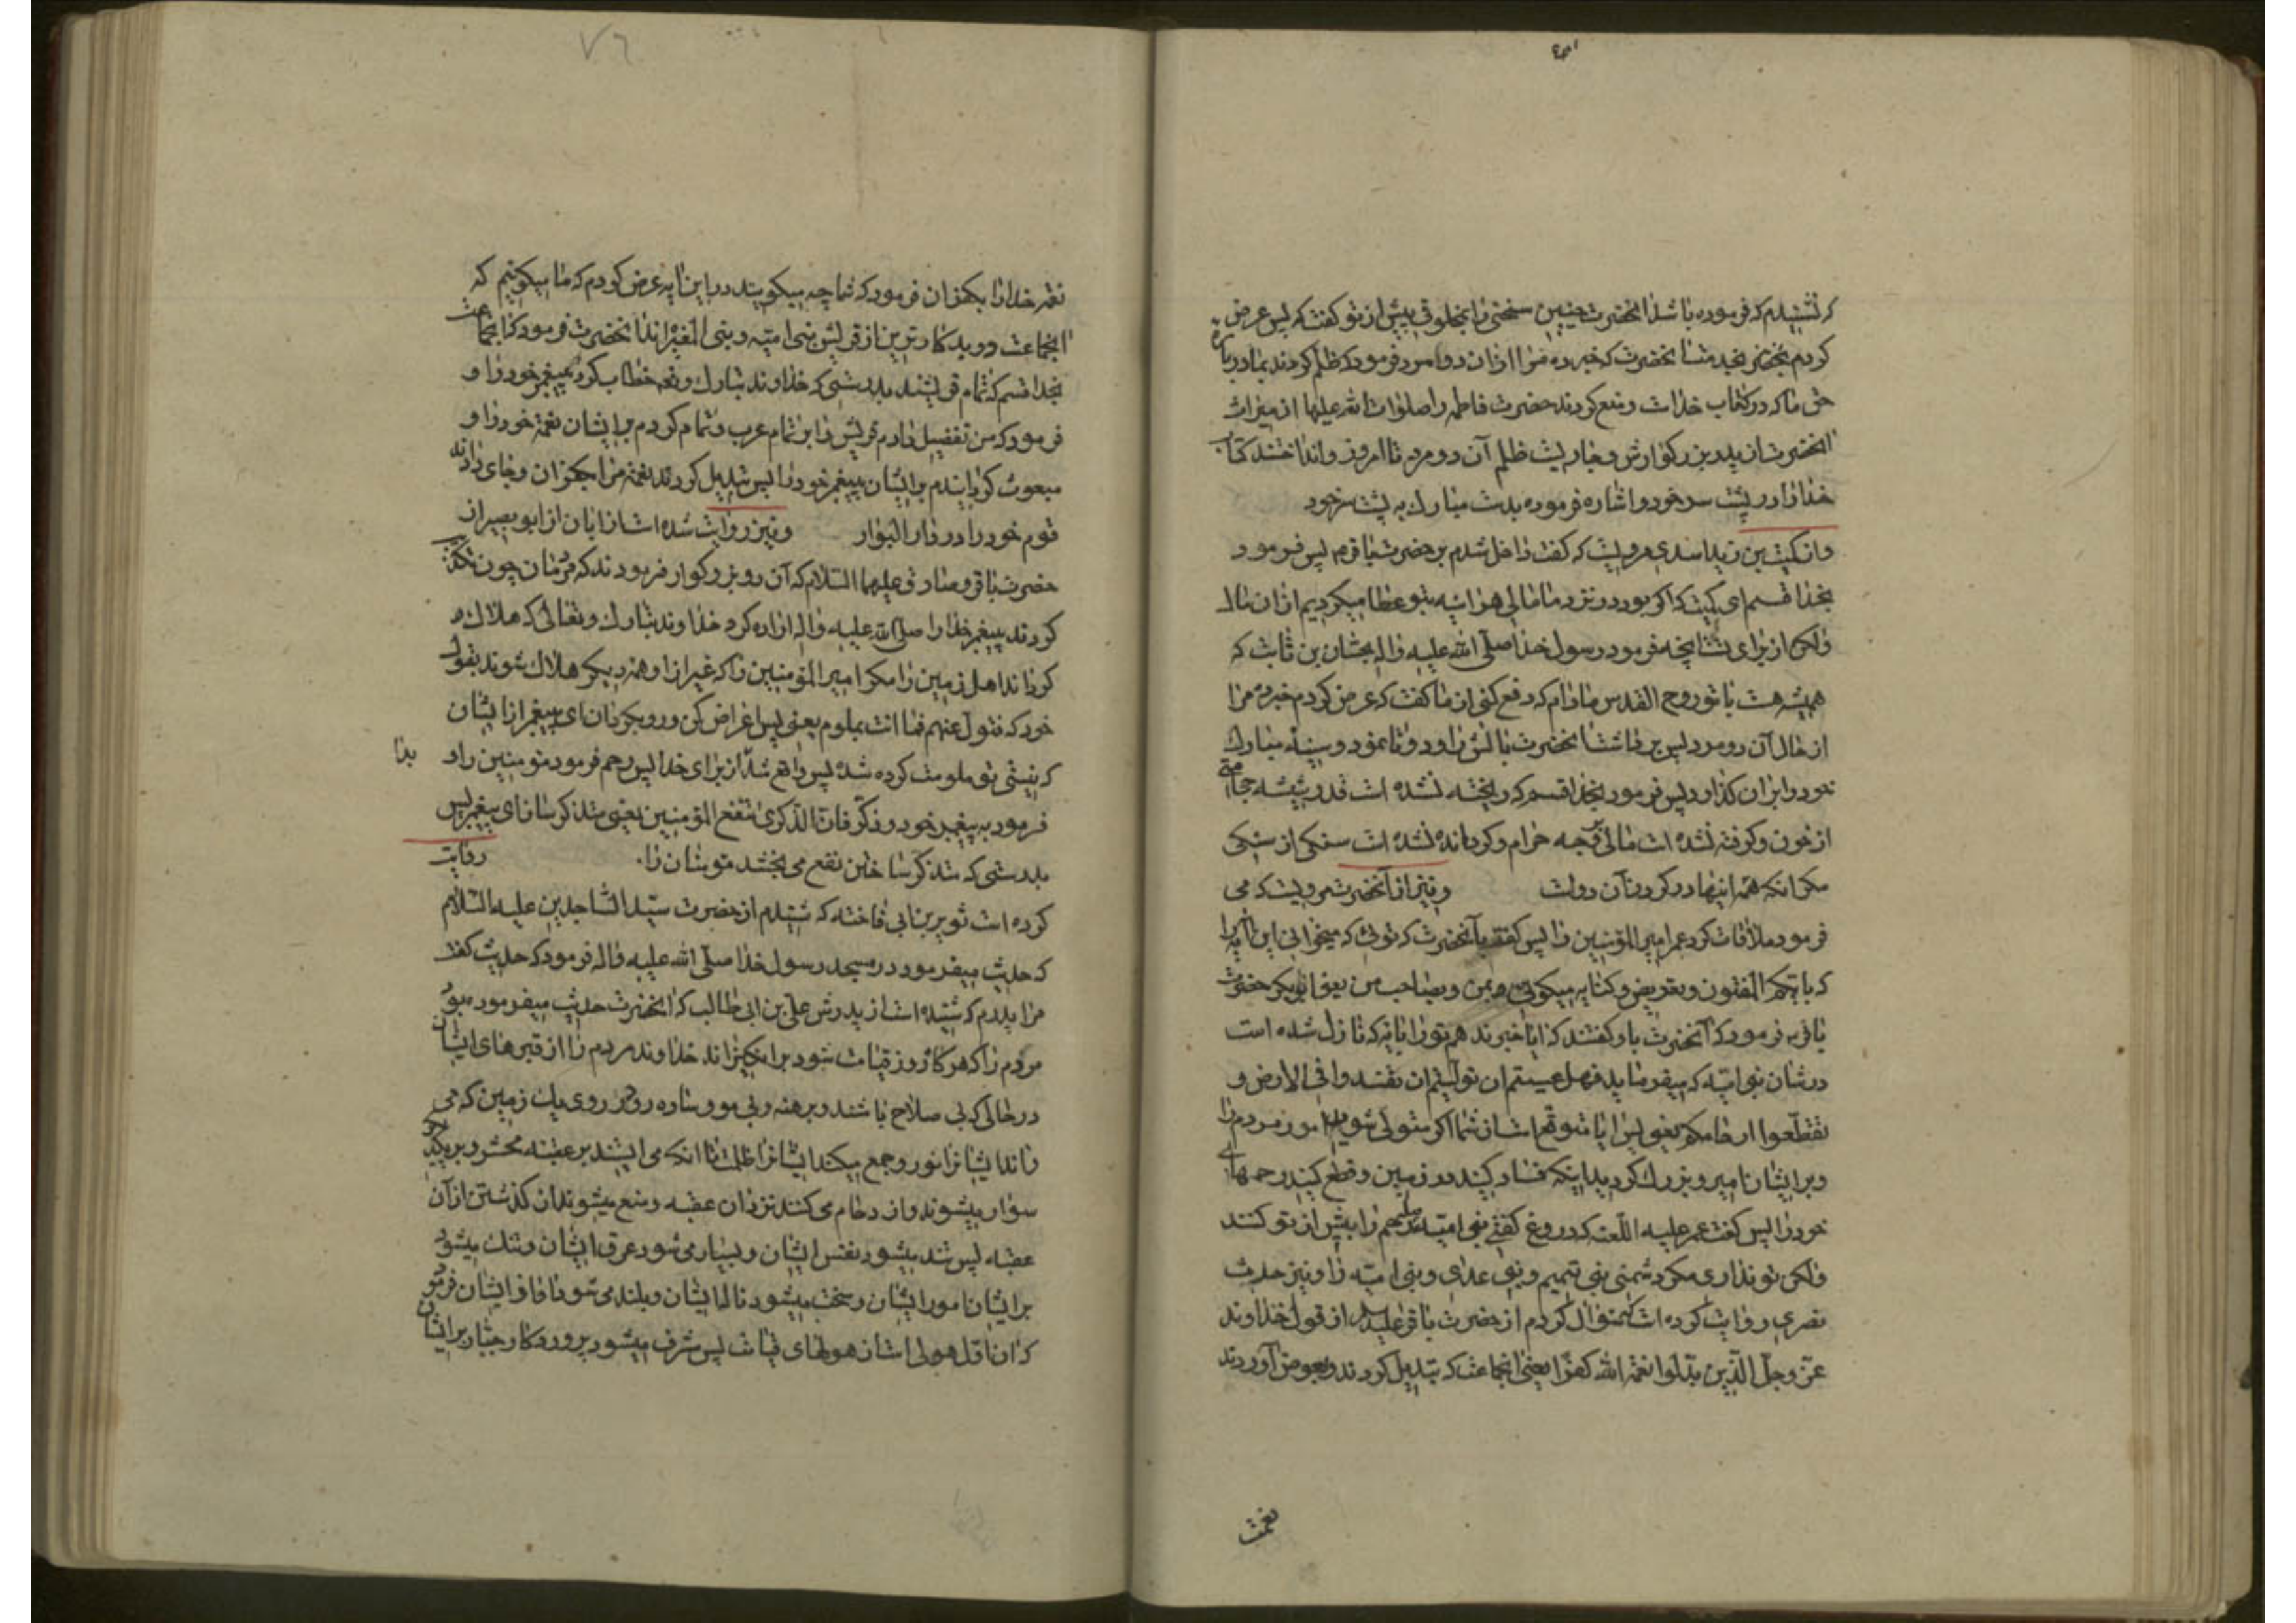 که نشنیدم که فرموده باشد آنحضرت چنین سختی را بمخلوقی پیش از تو گفت که پس عرض
کردم بخدمت آنحضرت که خبر ده مرا از آن دو مرد فرمود که ظلم کردند بما در باره
حق ما که در کتاب خداست و منع کردند حضرت فاطمه را صلوات الله علیها از میراث
آنحضرت از پدر بزرگوارش و جاریست ظلم آن دو مرد تا امروز و انداختند کتاب
خدا را در پشت سر خود و اشاره فرموده بدست مبارک به پشت سر خود
و از کمیت بن زید اسدی مرویست که گفت داخل شدم بر حضرت باقر پس فرمود
بخدا قسم ای کمیت که اگر بود در نزد ما مالی هر اینه بتو عطا میکردیم از آن مال
ولکن از برای تست آنچه فرمود رسول خدا صلی الله علیه واله بحسان بن ثابت که
همیشه هست با تو روح القدس مادام که دفع کنی از ما گفت که عرض کردم خبر ده مرا
از حال آن دو مرد پس برداشت آنحضرت بالش را و دوتا نمود و سینه مبارک
خود را بر آن گذارد پس فرمود بخدا قسم که ریخته نشده است قدر شیشه حجامتی
از خون و گرفته نشده است مالی بوجه حرام و گردانده نشده است سنگی از سنگی
مگر انکه همه اینها در گردن آن دو است و نیز از آنحضرت مرویست که می
فرمود ملاقات کرد عمر امیر المؤمنین را پس گفت بآنحضرت که توئی که میخوانی این آیه را
که بایکم المفتون و تعریض و کنایه میگوئی بمن و بصاحب من یعنی ابوبکر حضرت
باقر فرمود که آنحضرت باو گفتند که ایا خبر ندهم تو را بایه که نازل شده است
در شان بنی امیه که میفرماید فهل عسیتم ان تولیتم ان تفسدوا فی الارض و
تقطعوا ارحامکم یعنی پس ایا متوقع است از شما اگر متولی شوید امور مردم را
و بر ایشان امیر و بزرگ گردید اینکه فساد کنید در زمین و قطع کنید رحمهای
خود را پس گفت عمر علیه اللعنه که دروغ گفتی بنی امیه رحم را بیش از تو کنند
ولکن تو نداری مگر دشمنی بنی تمیم و بنی عدی و بنی امیه را و نیز حدیث
نصری روایت کرده است که سئوال کردم از حضرت باقر علیه السلام از قول خداوند
عز وجل الذین بدلوا نعمة الله کفرا یعنی انجماعت که تبدیل کردند و بعوض آوردند
نعمت
٧٦
نعمة خدا را بکفران فرمود که شما چه میگویید در این آیه عرض کردم که ما میگوئیم که
انجماعت دو بدکارترین از قریش بنی امیه و بنی المغیره اند آنحضرت فرمود که انجماعت
بخدا قسم که تمام قریشند بدرستی که خداوند تبارک وتعالی خطاب کرد پیغمبر خود را و
فرمود که من تفضیل دادم قریش را بر تمام عرب و تمام کردم بر ایشان نعمة خود را و
مبعوث گردانیدم بر ایشان پیغمبر خود را پس تبدیل کردند نعمة مرا بکفران و جای دادند
قوم خود را در دار البوار و نیز روایت شده است از ابان از ابو بصیر از
حضرت باقر و صادق علیهما السلام که آن دو بزرگوار فرمودند که مردمان چون تکذیب
کردند پیغمبر خدا را صلی الله علیه واله اراده کرد خداوند تبارک وتعالی که هلاک
گرداند اهل زمین را مگر امیر المؤمنین را که غیر از او همه دیگر هلاک شوند بقول
خود که فتول عنهم فما انت بملوم یعنی پس اعراض کن و رو بگردان ای پیغمبر از ایشان
که نیستی تو ملومت کرده شده پس واقع شد از برای خدا پس رحم فرمود مومنین را و بدا
فرمود به پیغمبر خود وذکر فان الذکری تنفع المؤمنین یعنی متذکر ساز ای پیغمبر پس
بدرستی که متذکر ساختن نفع می بخشد مومنان را. روایت
کرده است ثویر بن ابی فاخته که شنیدم از حضرت سید الساجدین علیه السلام
که حدیث میفرمود در مسجد رسول خدا صلی الله علیه واله فرمود که حدیث گفت
مرا پدرم که شنیده است از پدرش علی بن ابی طالب که آنحضرت حدیث میفرموده بود
مردم را که هرگاه روز قیامت شود بر انگیزاند خداوند مردم را از قبرهای ایشان
در حالی که بی صلاح باشند و برهنه و بی مو و ساده رو در روی یک زمین که می
راند ایشانرا نور و جمع میکند ایشانرا ظلمت تا انکه می ایستند بر عقبه محشر و بر یکدیگر
سوار میشوند و ازدحام می کنند نزد آن عقبه و منع میشوند از گذشتن از آن
عقبه پس تند میشود نفس ایشان و بسیار می شود عرق ایشان و تنگ میشود
بر ایشان امور ایشان و سخت میشود ناله ایشان و بلند می شود آوازه ایشان فرمود
که آن اول هولی است از هولهای قیامت پس مشرف میشود پروردگار جبار بر ایشان